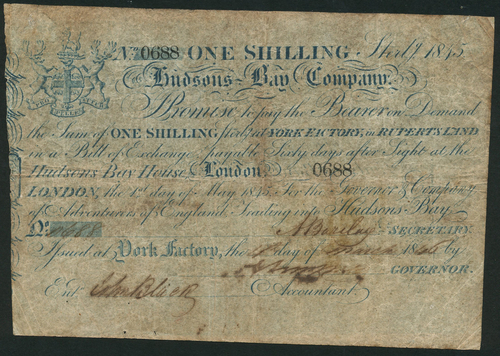 No. 0688 ONE SHILLING Sterlg. 1845
Hudsons Bay Company.
Promise to pay the Bearer on Demand
the Sum of ONE SHILLING Sterlg. at YORK FACTORY, in RUPERTS LAND
in a Bill of Exchange payable Sixty days after Sight at the
Hudsons Bay House London 0688
LONDON, the 1st day of May 1845 For the Governor & Company
of Adventurers of England Trading into Hudsons Bay.
SECRETARY.
Issued at York Factory, the day of 18 by
GOVERNOR.
Entd. John Black Accountant.